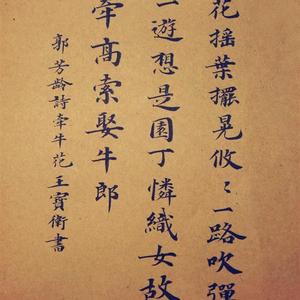 花搖葉擺晃攸〻一路吹彈
一遊想是園丁憐織女故
牽高索娶牛郎
郭芳齡詩牽牛花王寶衛書